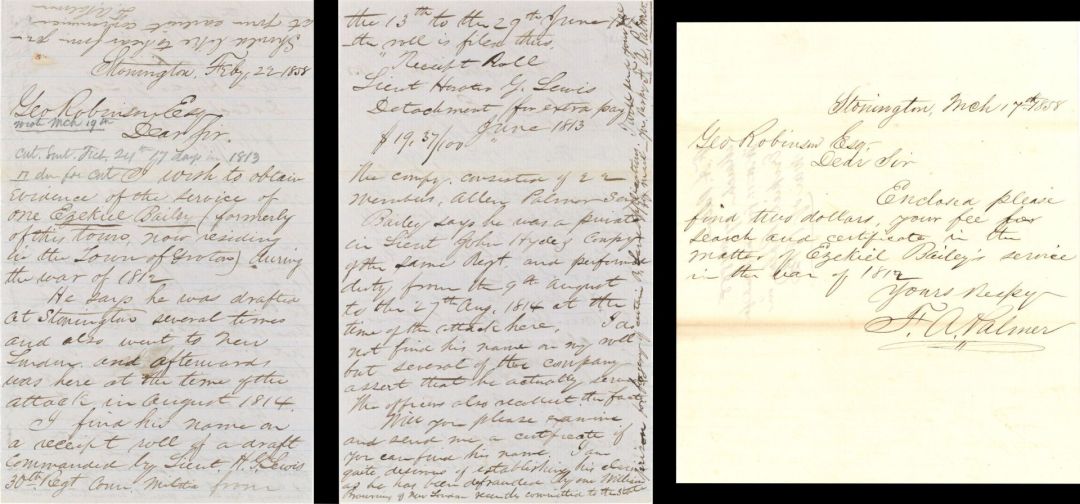 Should like to hear from you
at your earliest convenience
F. A. Palmer
Stonington, Feby. 22 1858
Geo Robinson Esq
Dear Sir.
wrote Mch 19th
17 days in 1813
I wish to obtain
Evidence of the service of
one Ezekiel Bailey (formerly
of this town, now residing
in the town of Groton) during
the war of 1812
He says he was drafted
at Stonington several times
and also went to New
London and afterwards
was here at the time of the
attack in August 1814.
I find his name on
a receipt roll of a draft
Commanded by Lieut H. G. Lewis
30th Regt Conn. Militia from
the 13th to the 29th June
the roll is files thus.
"Receipt Roll
Lieut G. Lewis
Detachment for extra pay
$19.37/100 June 1813
The compy. consisted of 22
members, Allen Palmer
Bailey says he was a private
in Lieut John Hyde's Compy
of the same Regt. and performed
duty from the 9th August
to the 27th Aug. 1814 at the
time of the attack here. I can
not find his name on my roll
but several of the company
assert that he actually served
The officers also recollect the fact
Will you please examine
and send me a certificate if
you can find his name. I am
quite desirous of establishing his claim
as he has been defrauded by one William
Browning of New London recently committed to the State
prison for forgery
F. A. Palmer
Stonington, Mch 17th 1858
Geo Robinson Esq.
Dear Sir
Enclosed please
find two dollars, your fee for
search and certificate in the
matter of Ezekiel Bailey's service
in the war of 1812
Yours Respy
F. A. Palmer